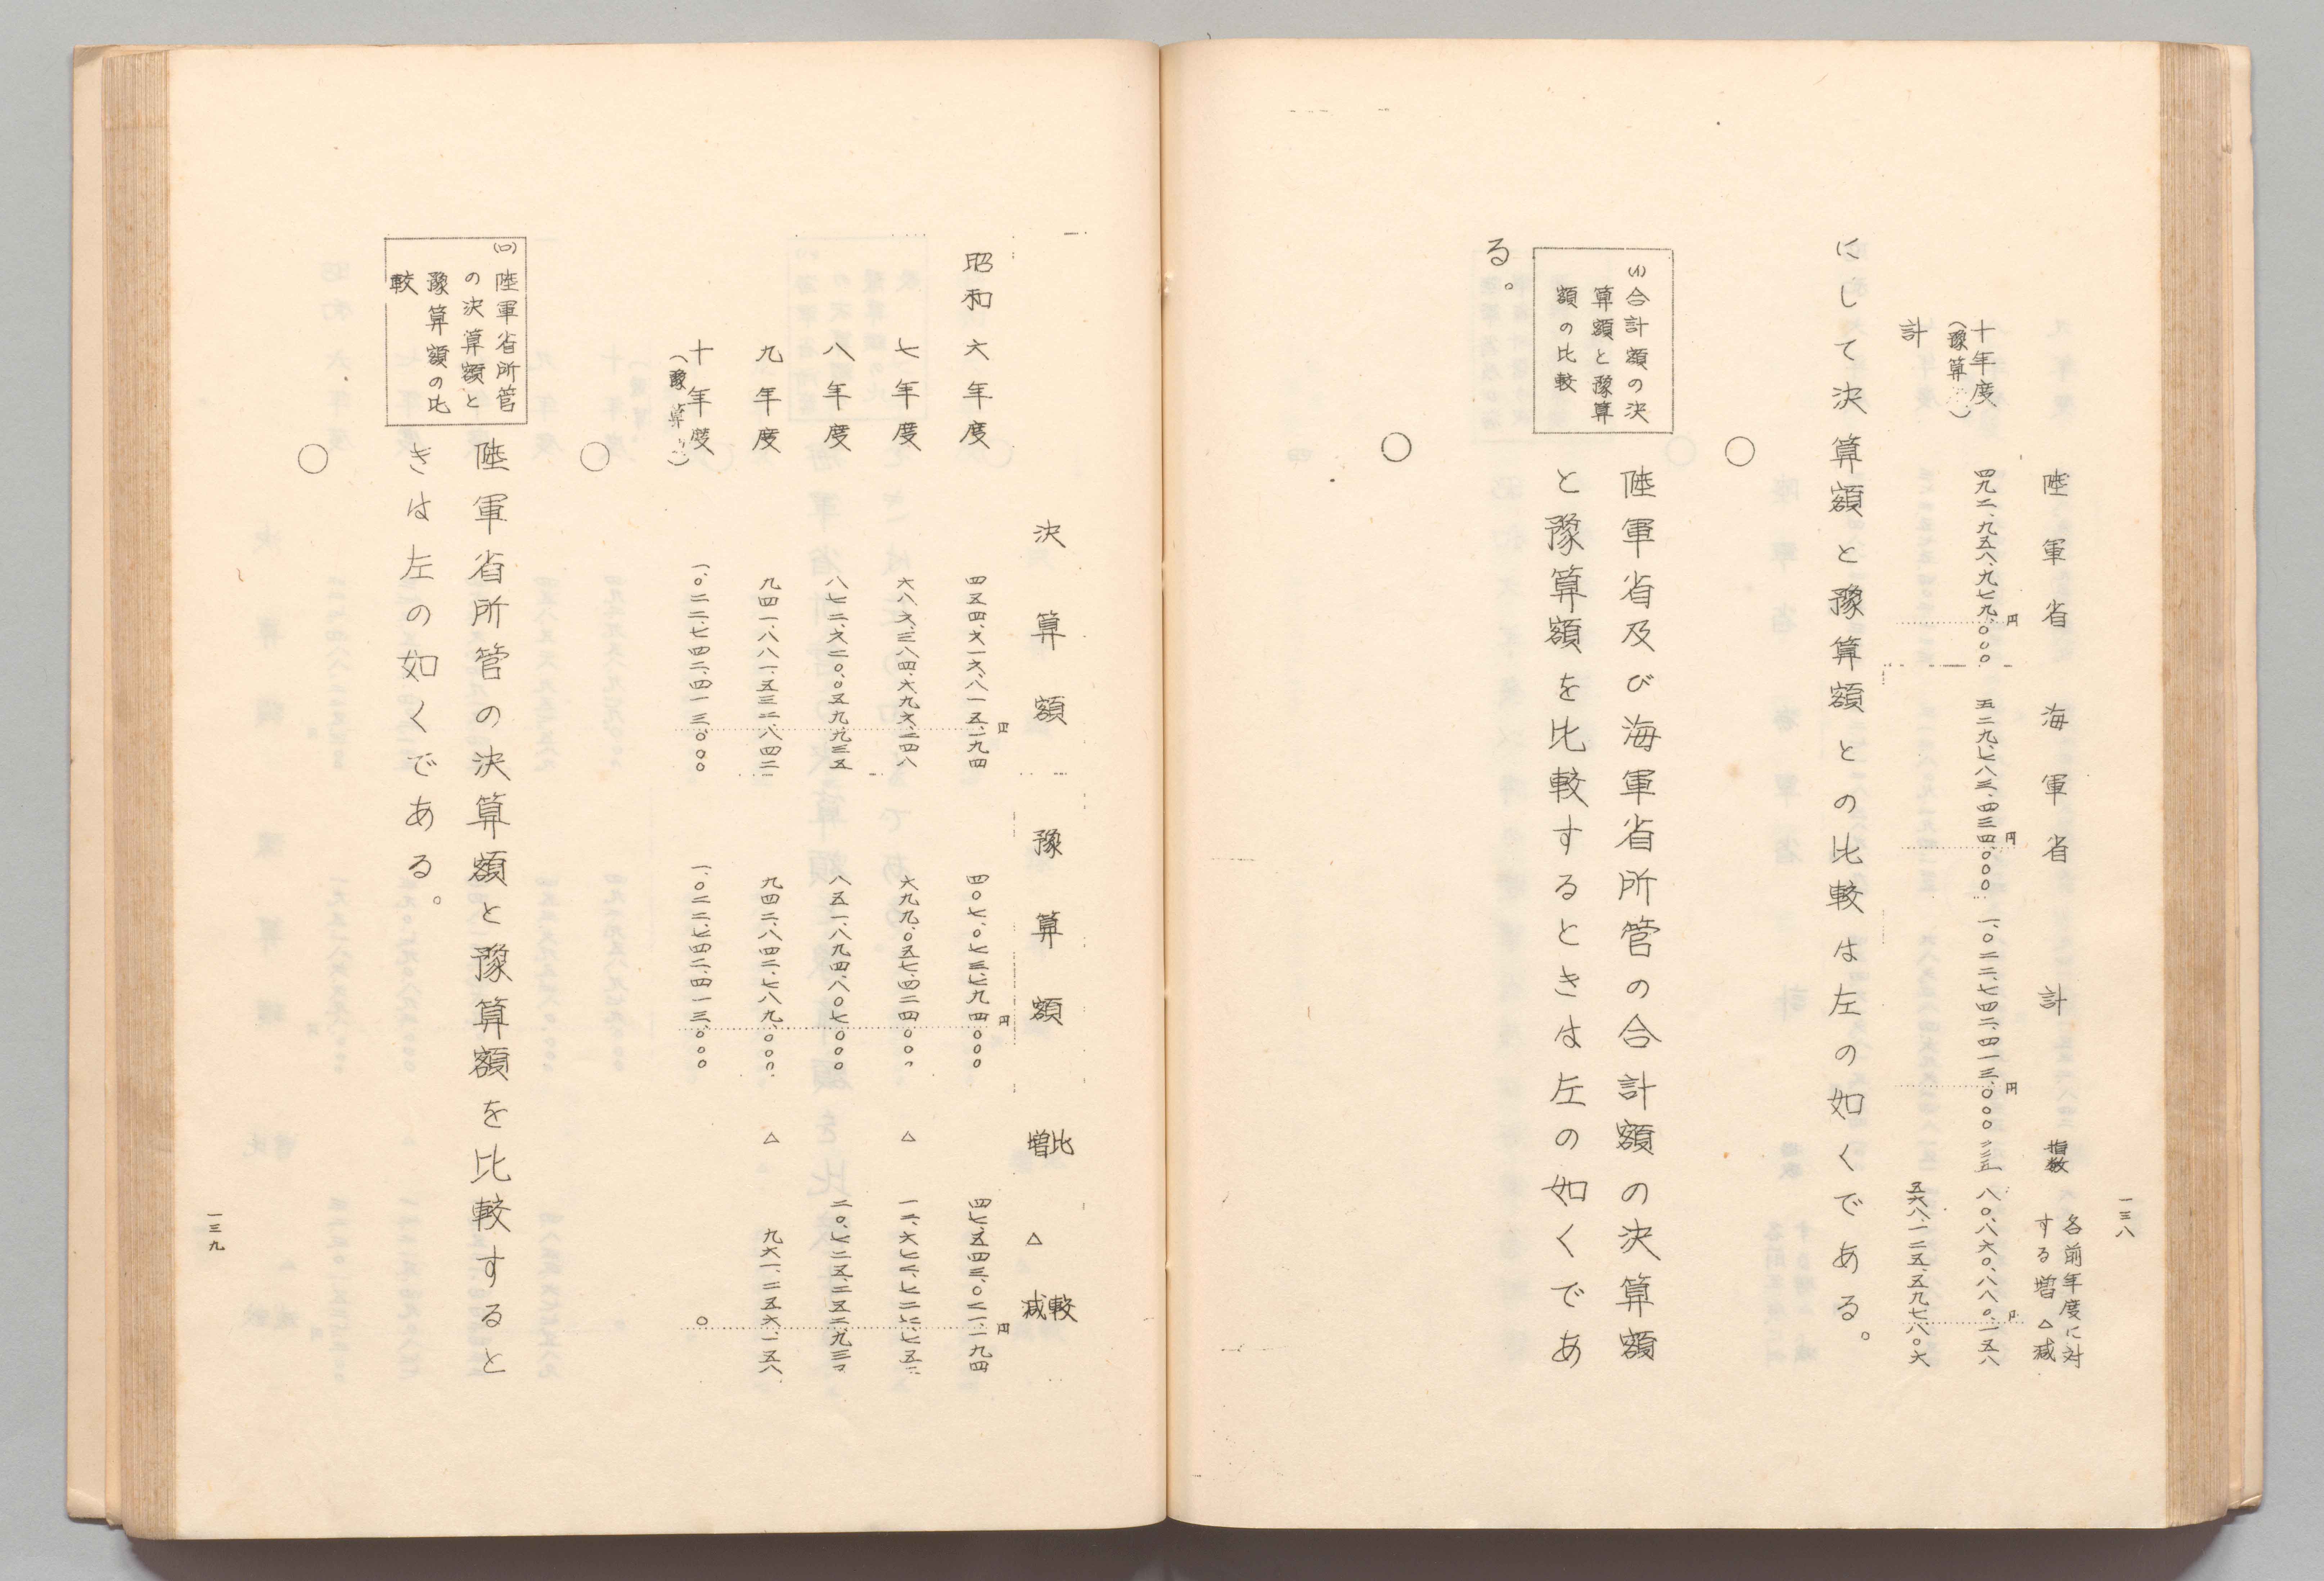 一三八
陸軍省　海軍省　計　指数　各前年度に対する増△減
十年度(豫算)　四九二、九五八、九七九、〇〇〇円　五二九、七八三、四三四、〇〇〇円　一、〇二二、七四二、四一三、〇〇〇円　二二五　八〇、八六〇、八八〇、一五八円
計　五六八、一二五、五九七、八〇六
にして決算額と豫算額との比較は左の如くである。
○
(イ)合計額の決
算額と豫算
額の比較
陸軍省及び海軍省所管の合計額の決算額
と豫算額を比較するときは左の如くであ
る。
○
決算額　豫算額　比較増△減
昭和六年度　四五四、六一六、八一五、一九四円　四〇七、〇七三、七九四、〇〇〇円　四七、五四三、〇二一、一九四円
七年度　六八六、三八四、六九六、二四八　六九九、〇五七、四二四、〇〇〇　△　一二、六七二、七二七、七五二
八年度　八七二、六二〇、〇五九、九三五　八五一、八九四、八〇七、〇〇〇　二〇、七二五、二五二、九三五
九年度　九四一、八八一、五三二、八四二　九四二、八四二、七八九、〇〇〇　△　九六一、二五六、一五八
十年度(豫算)　一、〇二二、七四二、四一三、〇〇〇　一、〇二二、七四二、四一三、〇〇〇　〇
○
(ロ)陸軍省所管
の決算額と
豫算額の比
較
陸軍省所管の決算額と豫算額を比較すると
きは左の如くである。
○
一三九